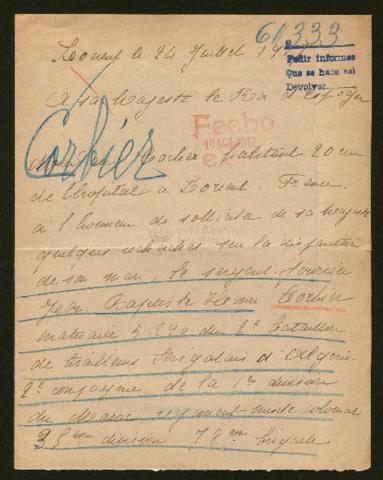 61333
Lorient le 24 Juillet 1917
Pedir informes
Que se hace asi
Devolver.
A sa Majesté le Roi d'Espagne
Fecho
10 AGO 1917
Corbier
Madame Corbier habitant 20 rue
de l'hopital à Lorient. France.
a l'honneur de solliciter de sa majesté
quelques recherches sur la disparition
de son mari, le sergent fourrier
Jean Baptiste Corbier
matricule 5.274 du 2e bataillon
de tirailleurs Sénégalais d'Algérie
2e compagnie, de la 1re division
du Maroc régiment mixte colonial
38ème division 78ème brigade